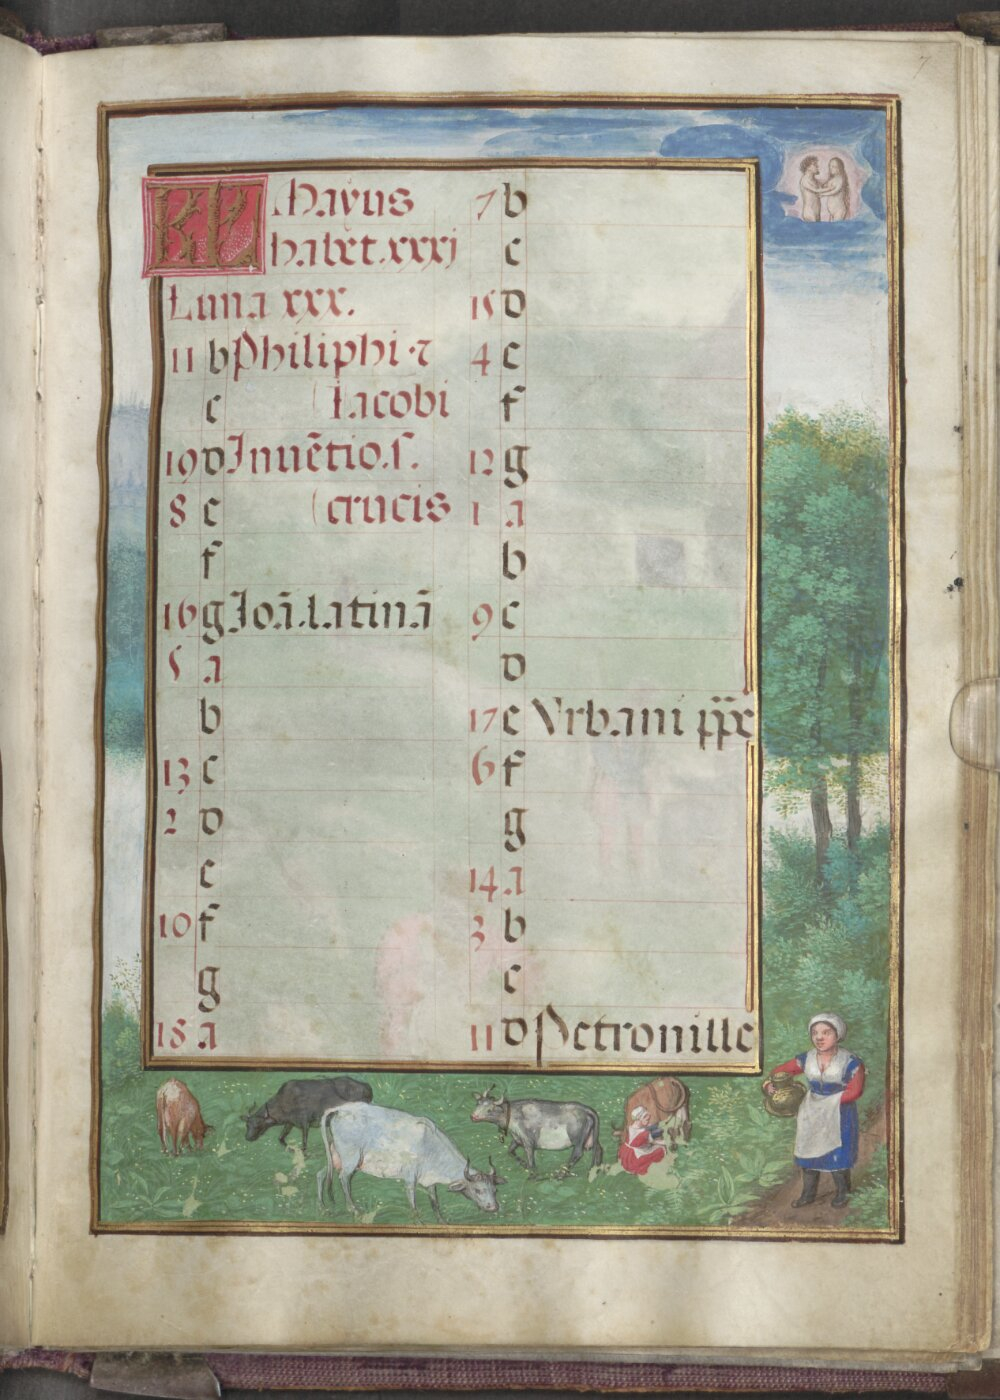 7
KL Mayus
habet.xxxj
Luna xxx.
11 b Philiphi · ⁊
c Iacobi
19 D Inuẽtio. s.
8 e crucis
f
16 g Ioã. latinã
5 a
b
13 c
2 D
e
10 f
g
18 a
7 b
c
15 D
4 e
f
12 g
1 a
b
9 c
D
17 e Vrbani ppe
6 f
g
14 a
3 b
c
11 D Petronille